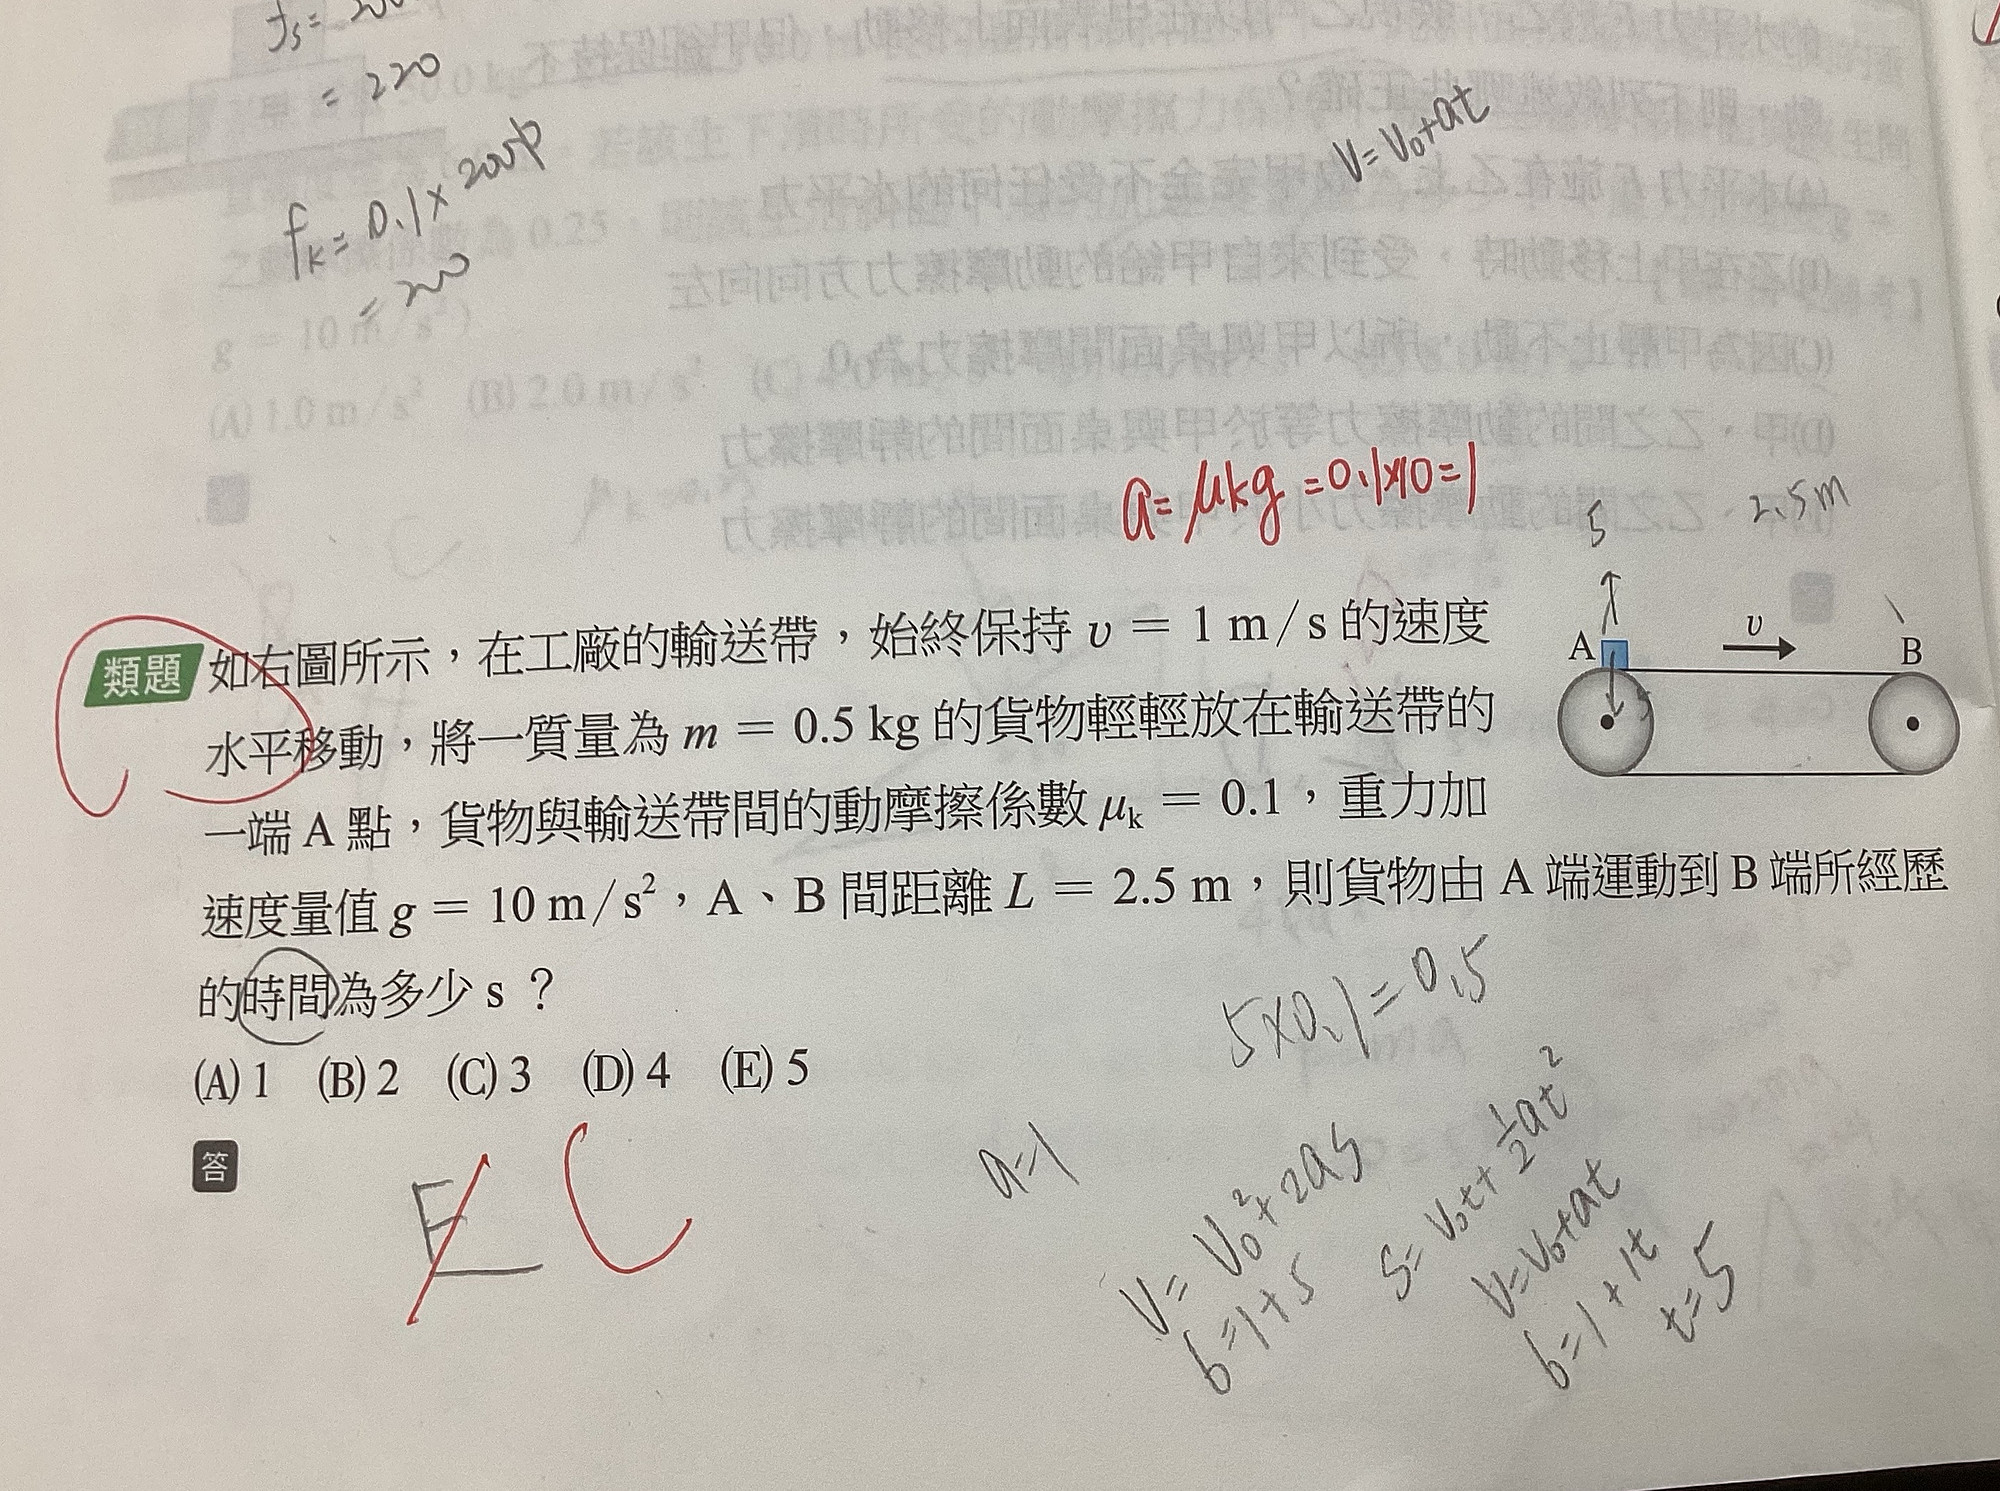 = 220
fk = 0.1 ×
= 200
V = V₀ + at
g = 10 m/s²)
(A) 1.0 m/s² (B) 2.0 m/s²
a = μkg = 0.1×10 = 1
5
2.5m
A
υ
B
5
類題 如右圖所示，在工廠的輸送帶，始終保持 υ = 1 m/s 的速度
水平移動，將一質量為 m = 0.5 kg 的貨物輕輕放在輸送帶的
一端 A 點，貨物與輸送帶間的動摩擦係數 μk = 0.1，重力加
速度量值 g = 10 m/s²，A、B 間距離 L = 2.5 m，則貨物由 A 端運動到 B 端所經歷
的時間為多少 s ？
(A) 1 (B) 2 (C) 3 (D) 4 (E) 5
5×0.1 = 0.5
答
E C
a=1
V = V₀² + 2as
6 = 1 + 5
S = V₀t + ½at²
V = V₀ + at
6 = 1 + 1t
t = 5